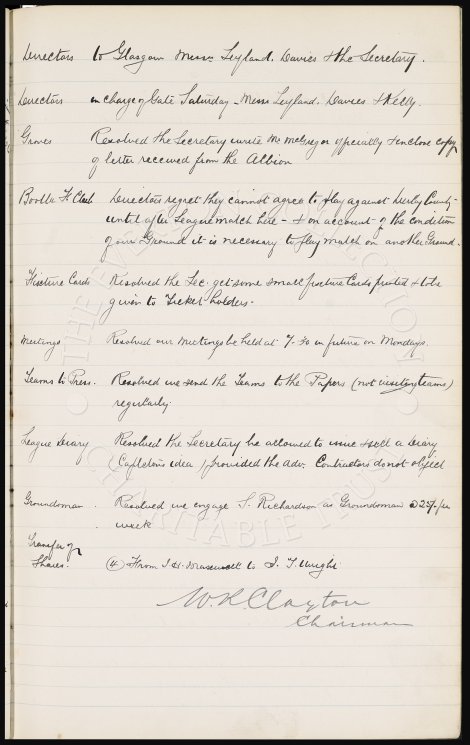 Directors to Glasgow Messrs Leyland. Davies & the Secretary.
Directors in charge of Gate Saturday - Messrs Leyland. Davies & Kelly.
Groves Resolved the Secretary write Mr McGregor officially & enclose copy
of letter received from the Albion
Bootle F. Club Directors regret they cannot agree to play against Derby County -
until after League match here - & on account of the condition
of our Ground it is necessary to play match on another Ground.
Fixture Cards Resolved the Sec: get some small fixture Cards printed & to be
given to Ticket holders -
Meetings Resolved our Meetings be held at 7.30 in future on Mondays.
Teams to Press. Resolved we send the Teams to the Papers (not visiting teams)
regularly.
League Diary Resolved the Secretary be allowed to issue & sell a Diary
( idea) provided the Adv. Contractors do not object
Groundsman. Resolved we engage S. Richardson as Groundsman @ 25/- per
week
Transfer of
Shares. (4) From to Wright
W. R Clayton
Chairman
EVERTON COLLECTION
CHARITABLE TRUST